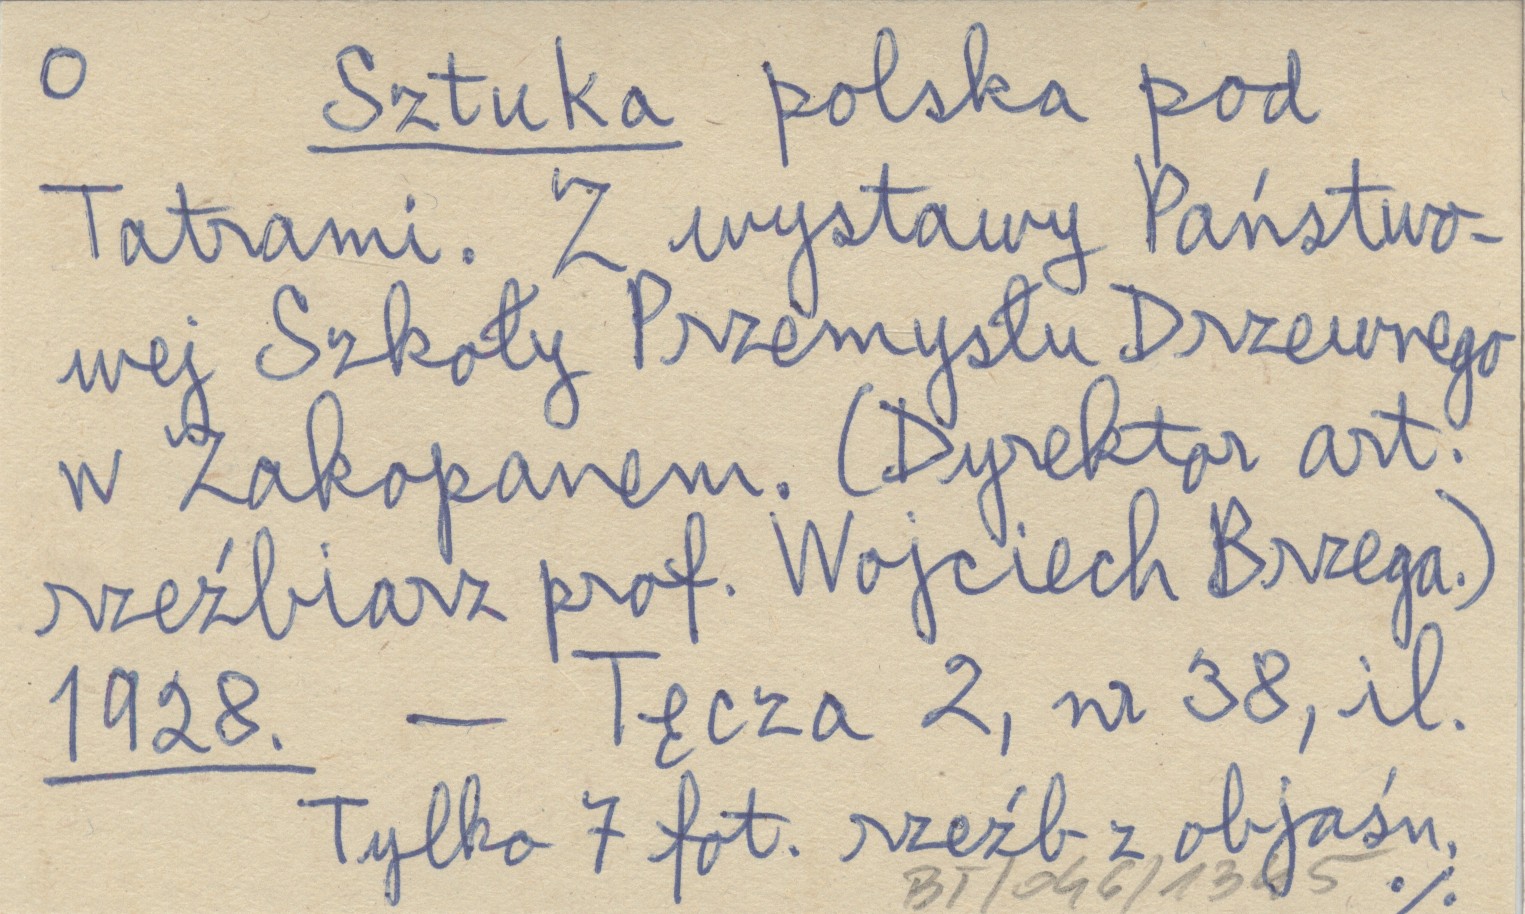 O Sztuka polska pod
Tatrami. Z wystawy Państwo-
wej Szkoły Przemysłu Drzewnego
w Zakopanem. (Dyrektor art.
rzeźbiarz prof. Wojciech Brzega.)
1928. — Tęcza 2, nr 38, il.
Tylko 7 fot. rzeźb z objaśn.
BT/046/ ./.